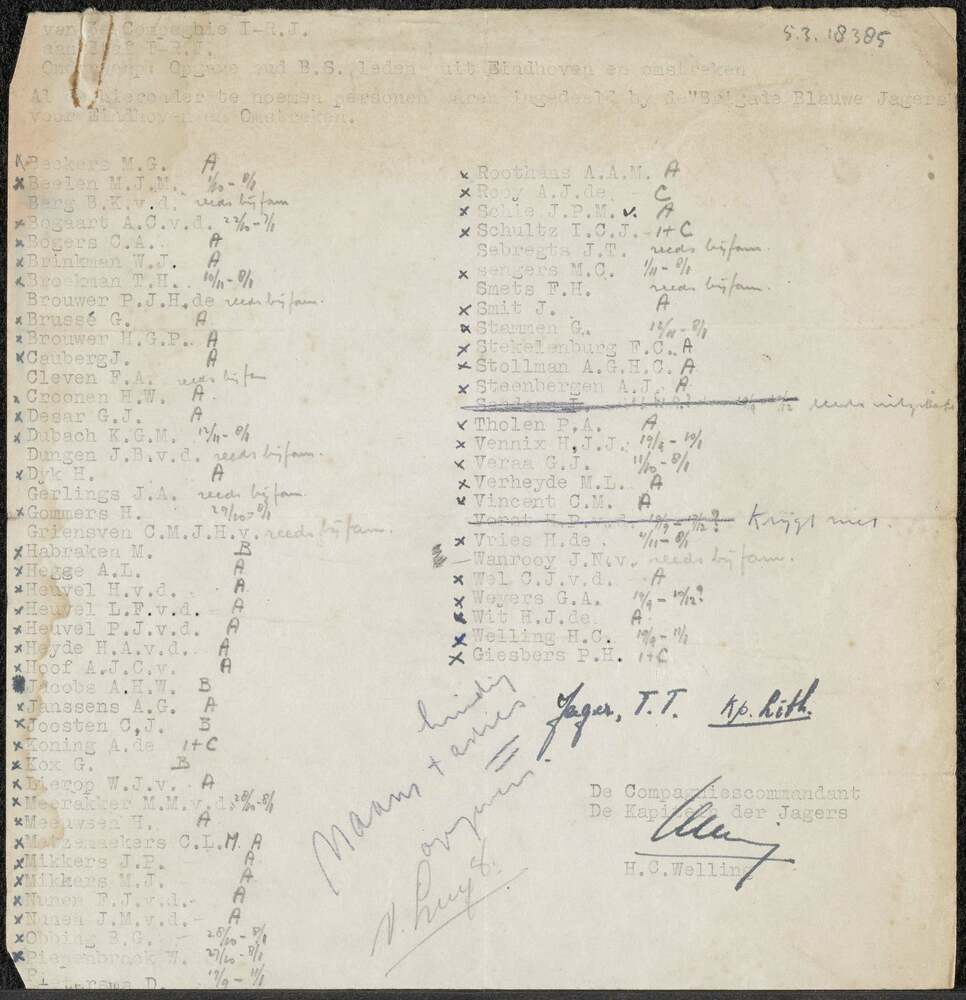 5.3.18385
van de Compagnie I-R.I.
aan Staf I-R.I.
Onderwerp: Opgave oud B.S. leden uit Eindhoven en omstreken
Al de hieronder te noemen personen waren ingedeeld by de "Brigade Blauwe Jagers
voor Eindhoven en Omstreken.
x Beckers M.G. A
x Beelen M.J.M. 1/10 - 8/1
Berg B.K.v.d. reeds bij fam
x Bogaart A.C.v.d. 22/10 - 7/1
x Bogers C.A. A
x Brinkman W.J. A
x Broekman T.H. 10/11 - 8/1
Brouwer P.J.H.de reeds bij fam.
x Brussé G. A
x Brouwer H.G.P. A
x Cauberg J. A
Cleven F.A. reeds bij fam
x Croonen H.W. A
x Degar G.J. A
x Dubach K.G.M. 12/11 - 8/1
Dungen J.B.v.d. reeds bij fam.
x Dyk H. A
Gerlings J.A. reeds bij fam.
x Gommers H. 29/10 - 8/1
Griensven C.M.J.H.v. reeds bij fam.
x Habraken M. B
x Hegge A.L. A
x Heuvel H.v.d. A
x Heuvel L.F.v.d. A
x Heuvel P.J.v.d. A
x Heyde H.A.v.d. A
x Hoof A.J.C.v. A
Jacobs A.H.W. B
x Janssens A.G. A
x Joosten C.J. B
x Koning A.de 1+C
x Kox G. B
x Lierop W.J.v. A
x Meerakker M.M.v.d. 28/10 - 8/1
x Meeuwsen H. A
x Metzemaekers C.L.M. A
x Mikkers J.P. A
x Mikkers M.J. A
x Nunen F.J.v.d. - A
x Nunen J.M.v.d. - A
x Obbing B.G. - 28/10 - 8/1
x Piepenbroek W. 27/10 - 8/1
D. 19/9 - 11/1
x Roothaas A.A.M. A
x Rooy A.J.de. - C
x Schie J.P.M. v. A
x Schultz I.C.J. - 1+C
Sebregts J.T. reeds bij fam.
x sengers M.C. 1/11 - 8/1
Smets F.H. reeds bij fam.
x Smit J. A
x Stammen G. 12/11 - 8/1
x Stekelenburg F.C. A
x Stollman A.G.H.C. A
x Steenbergen A.J. A
reeds uitgekeerd
x Tholen P.A. A
x Vennix H.J.J. 19/9 - 19/1
x Veraa G.J. 11/10 - 8/1
x Verheyde M.L. A
x Vincent C.M. A
Voost H.P.v.d. 19/9 - 17/12? Krijgt niet.
x Vries H.de 11/11 - 8/1
- Wanrooy J.N.v. reeds bij fam.
x Wel C.J.v.d. A
x Weyers G.A. 19/9 - 17/12?
x Wit H.J.de A
x Welling H.C. 19/9 - 11/1
x Giesbers P.H. 1+C
Jager, T.T. Kp. Lith.
Naam + adres
opgeven
De Compagniescommandant
De Kapitein der Jagers
H.C.Welling